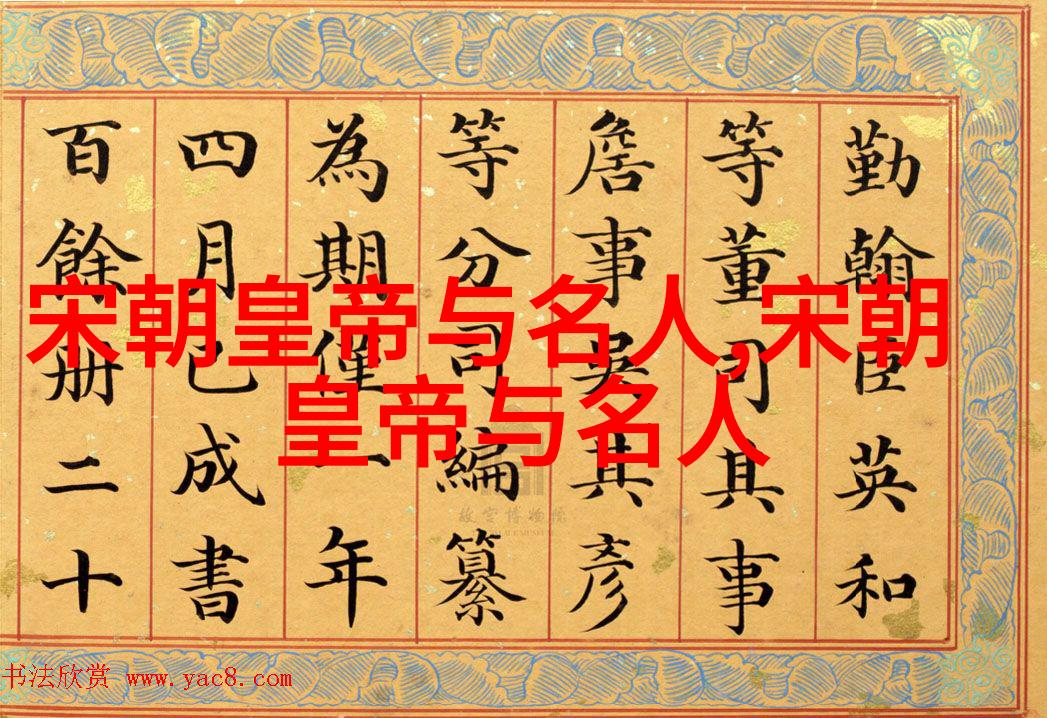 宋朝皇帝与名人,宋朝
皇帝与名人
勤翰臣英和
等董司其事
詹事吳其彥
等分司編纂
為期僅一年
四月已成書
百餘册二十
故宫博物院
书法欣赏 www.yac8.com